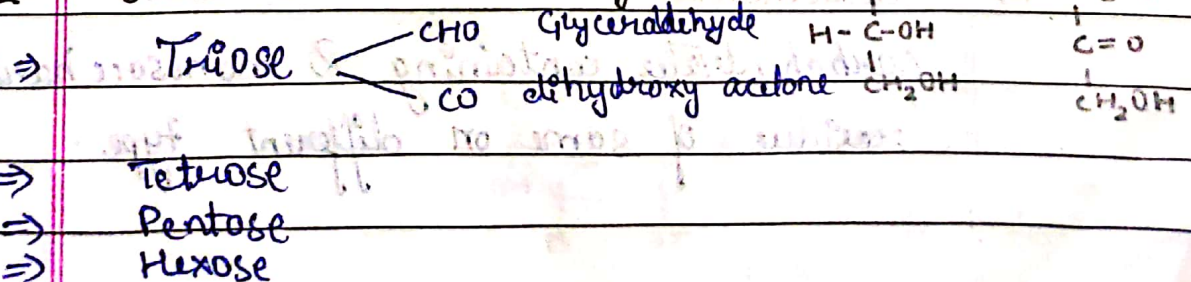 ⇒ Triose CHO Glyceraldehyde H - C-OH C=O
CO dihydroxy acetone CH₂OH CH₂OH
⇒ Tetrose
⇒ Pentose
⇒ Hexose